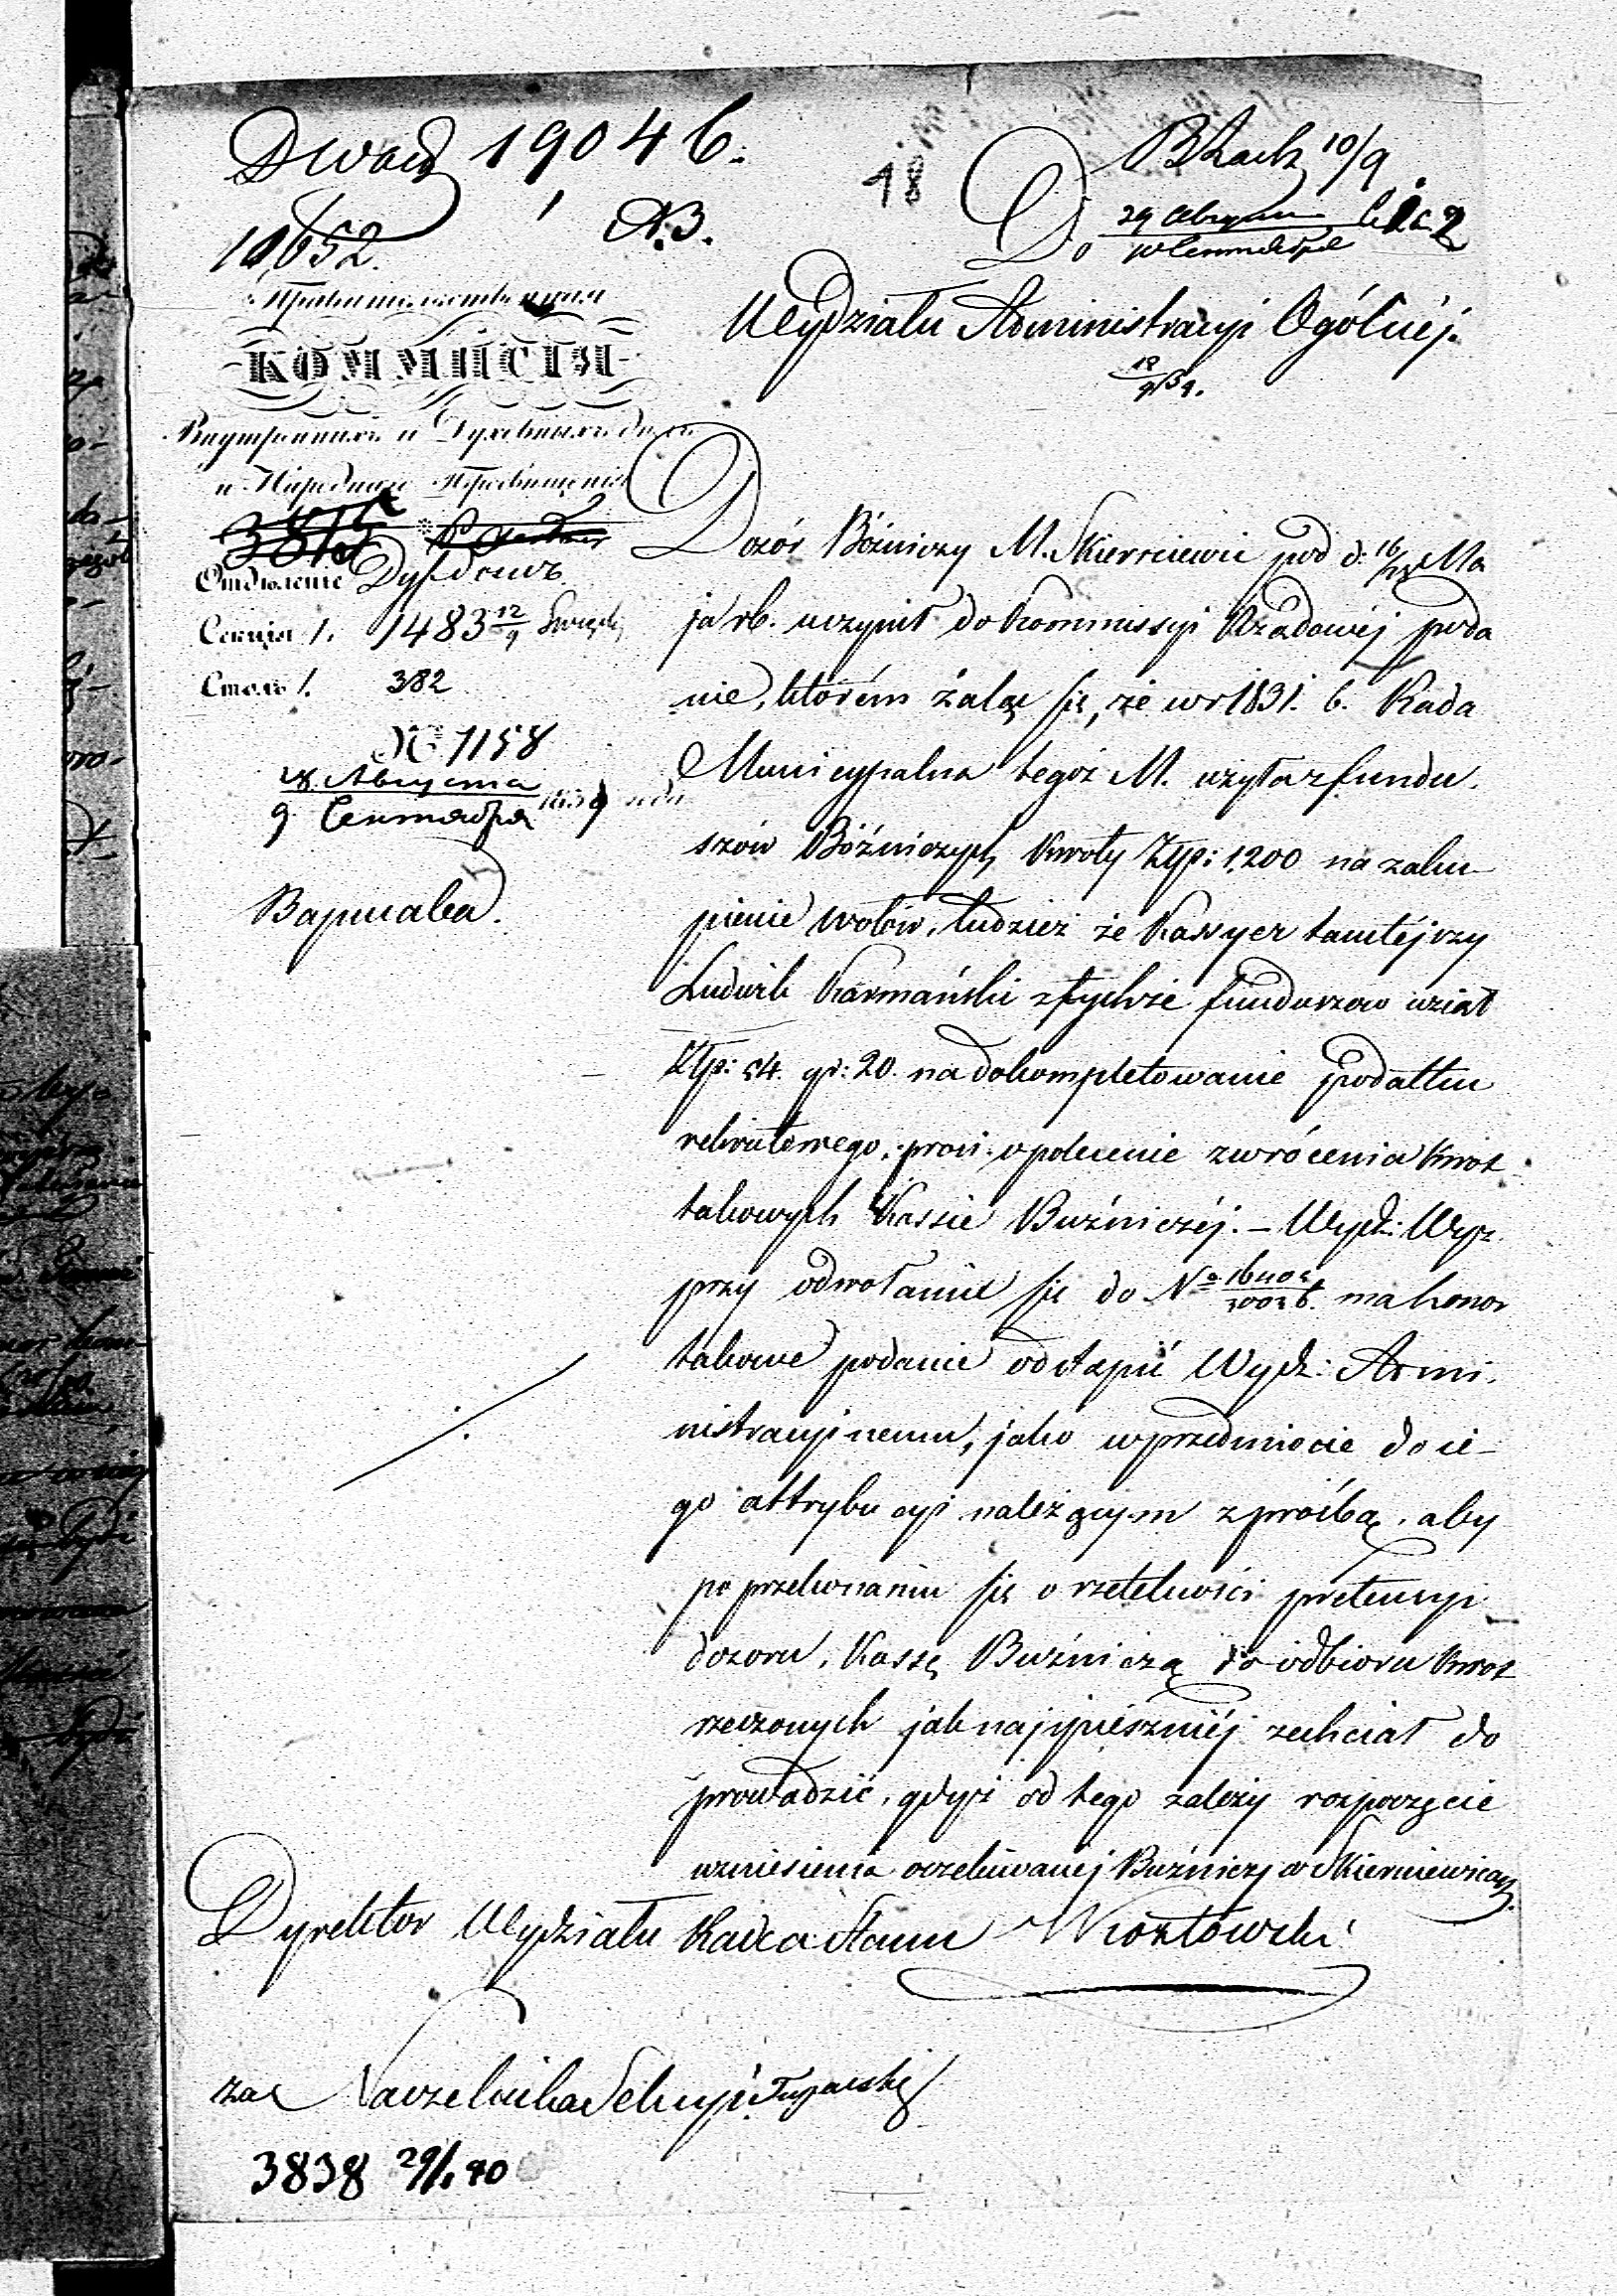 19046.
18
10/9
10652.
N.B.
Do
Правительственная
КОММИСІЯ
Внутреннихъ и Духовныхъ дѣлъ
и Народнаго Просвѣщенія
Wydziału Administracyi Ogólnéj.
Отдѣленіе Духовныхъ
Секція 1. 1483 12/9
Столъ 1. 382
№ 1158
28 Августа
9 Сентября 1839 года
Варшава.
Dozór Bóżniczy M. Skierniewic pod d: 16/28 Ma
ja rb. uczynił do Kommissyi Rządowéj poda
nie, którém żaląc się, że w r 1831. b. Rada
Municypalna tegoż M. użyła z fundu
szów Bóźniczych kwoty Złp: 1,200 na zaku
pienie wołów, tudzież że Kassyer tamtéjszy
Ludwik Karmański z tychże funduszow wziął
Złp: 54. gr: 20. na dokompletowanie podatku
rekrutowego, prosi o polecenie zwrócenia kwot
takowych Kassie Buźniczéj. – Wydz: Wyz.
przy odwołaniu się do No ma honor
takowe podanie odstąpić Wydz: Admi
nistracyjnemu, jako w przedmiocie do ie
go attrybucyi należącym z prośbą, aby
po przekonaniu się o rzetelności pretensyi
dozoru, Kassę Buźniczą do odbioru kwot
rzeczonych jak najspieszniéj zechciał do
prowadzić, gdyż od tego zależy rozpoczęcie
wzniesienia oczekiwanéj Buźnicy w Skierniewicach.
Dyrektor Wydziału Radca Stanu Kozłowski
za Naczelnika Sekcyi
3838 29/1 40